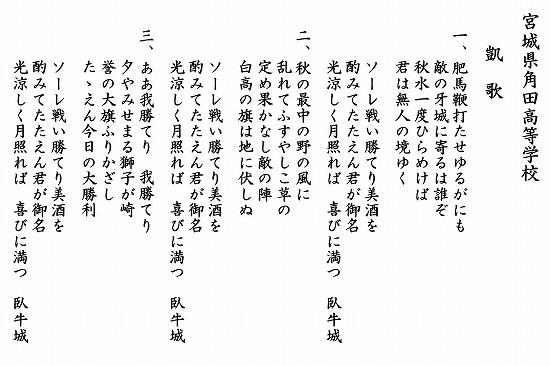 宮城県角田高等学校
凱 歌
一、肥馬鞭打たせゆるがにも
敵の牙城に寄るは誰ぞ
秋水一度ひらめけば
君は無人の境ゆく
ソーレ戦い勝てり美酒を
酌みてたたえん君が御名
光涼しく月照れば 喜びに満つ 臥牛城
二、秋の最中の野の風に
乱れてふすやしこ草の
定め果かなし敵の陣
白高の旗は地に伏しぬ
ソーレ戦い勝てり美酒を
酌みてたたえん君が御名
光涼しく月照れば 喜びに満つ 臥牛城
三、ああ我勝てり 我勝てり
夕やみせまる獅子が崎
誉の大旗ふりかざし
たゝえん今日の大勝利
ソーレ戦い勝てり美酒を
酌みてたたえん君が御名
光涼しく月照れば 喜びに満つ 臥牛城